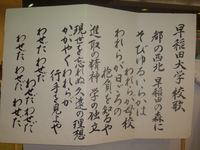 早稲田大学 校歌
都の西北 早稲田の森に
そびゆるいらかは
われらが母校
われらが日ごろの
抱負を知るや
進取の精神 学の独立
現世を忘れぬ 久遠の理想
かがやくわれらが
行手を見よや
わせだ わせだ
わせだ わせだ
わせだ わせだ わせだ